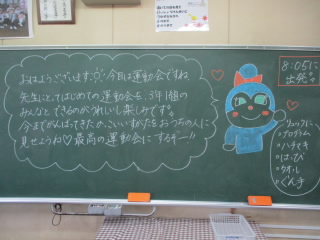 おはようございます!今日は運動会ですね。
先生にとってはじめての運動会を、3年1組の
みんなとできるのがうれしいし楽しみです。
今までがんばってきた、かっこいいすがたをおうちの人に
見せようね♡最高の運動会にするぞー!!
8:05に
出発
リュックに…
・プログラム
・ハチマキ
・はっぴ
・タオル
・ぐんて